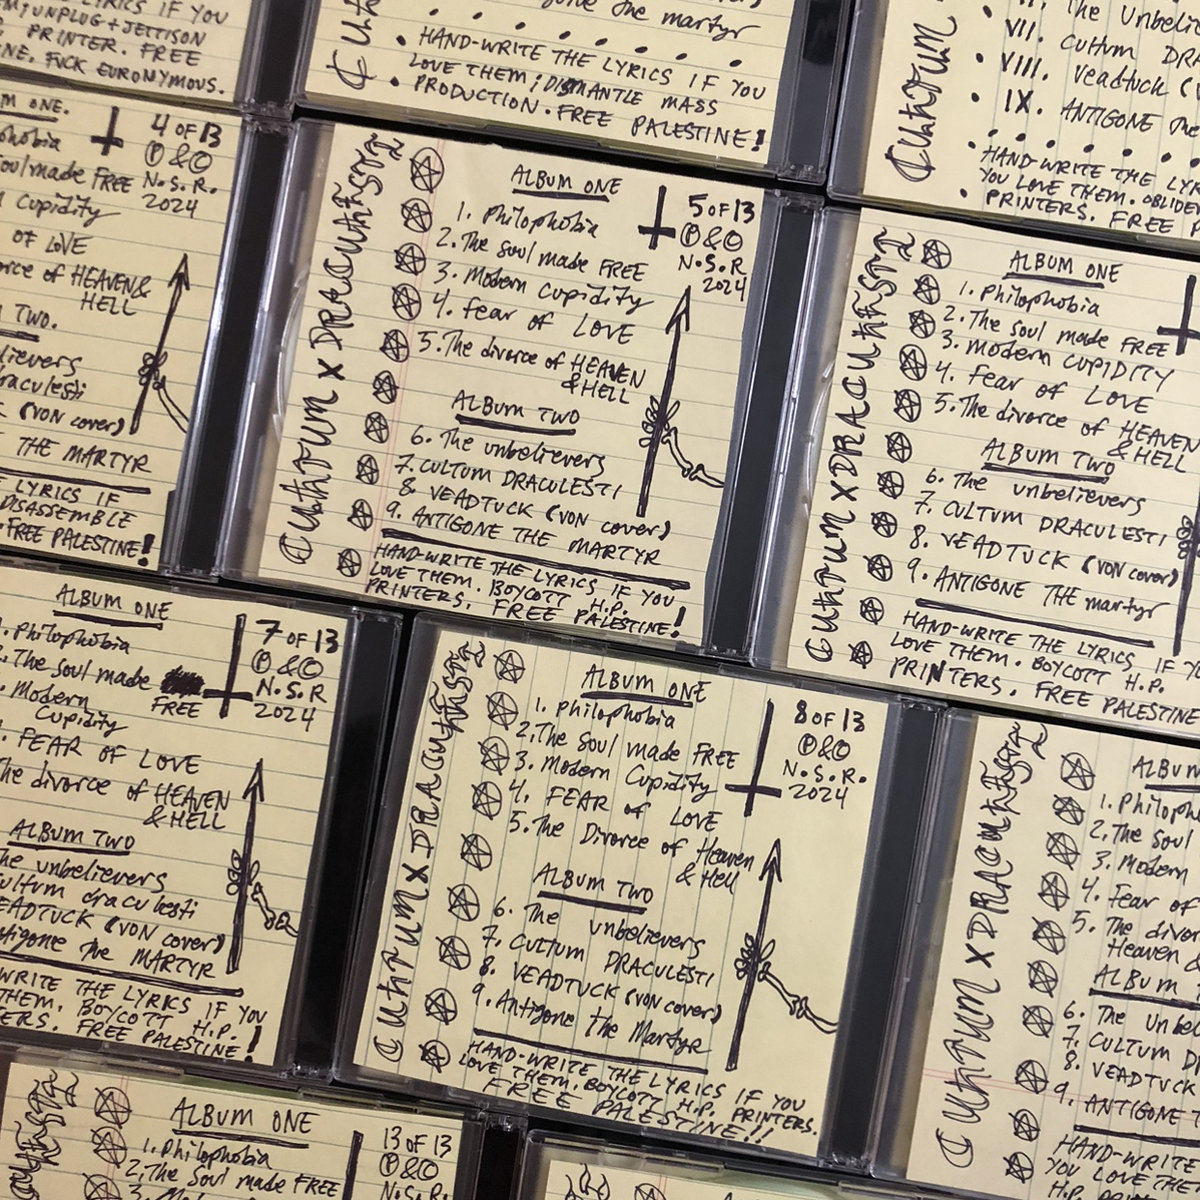 LYRICS IF YOU
UNPLUG + JETTISON
PRINTER. FREE
FUCK EURONYMOUS.
the martyr
• HAND-WRITE THE LYRICS IF YOU
LOVE THEM; DISMANTLE MASS
• PRODUCTION. FREE PALESTINE!
The Unbelie
• VII. CULTUM DRA
• VIII. Veadtuck (V
• IX. ANTIGONE the
• HAND-WRITE THE LYR
YOU LOVE THEM.
• PRINTERS. FREE P
M ONE.
phobia
soul made FREE
Cupidity
OF LOVE
orce of HEAVEN &
HELL
TWO.
lievers
raculesti
(VON cover)
THE MARTYR
E LYRICS IF
DISASSEMBLE
FREE PALESTINE!
4 OF 13
Ⓟ & ©
N.S.R.
2024
ALBUM ONE
1. Philophobia
2. The soul made FREE
3. Modern Cupidity
4. Fear of LOVE
5. The divorce of HEAVEN
& HELL
ALBUM TWO
6. The unbelievers
7. CULTUM DRACULESTI
8. VEADTUCK (VON cover)
9. ANTIGONE THE MARTYR
HAND-WRITE THE LYRICS IF YOU
LOVE THEM. BOYCOTT H.P.
PRINTERS. FREE PALESTINE!
5 OF 13
Ⓟ & ©
N.S.R
2024
ALBUM ONE
1. Philophobia
2. The soul made FREE
3. Modern CUPIDITY
4. Fear of LOVE
5. The divorce of HEAVEN
& HELL
ALBUM TWO
6. The unbelievers
7. CULTUM DRACULESTI
8. VEADTUCK (VON cover)
9. ANTIGONE THE martyr
HAND-WRITE THE LYRICS IF Y
LOVE THEM. BOYCOTT H.P.
PRINTERS. FREE PALESTINE
ALBUM ONE
. Philophobia
. The soul made FREE
. Modern
Cupidity
. FEAR OF LOVE
The divorce of HEAVEN
& HELL
ALBUM TWO
The unbelievers
Cultum draculesti
EADTUCK (VON cover)
ntigone the MARTYR
WRITE THE LYRICS IF YOU
THEM. BOYCOTT H.P.
ERS. FREE PALESTINE!
7 OF 13
Ⓟ & ©
N.S.R
2024
ALBUM ONE
1. Philophobia
2. The soul made FREE
3. Modern Cupidity
4. FEAR of LOVE
5. The Divorce of Heaven
& Hell
ALBUM TWO
6. The unbelievers
7. CULTUM DRACULESTI
8. VEADTUCK (VON cover)
9. Antigone the Martyr
HAND-WRITE THE LYRICS IF YOU
LOVE THEM. BOYCOTT H.P. PRINTERS.
FREE PALESTINE!!!
8 OF 13
Ⓟ & ©
N.S.R.
2024
ALBUM
1. Philopho
2. The soul
3. Modern
4. Fear of
5. The divor
Heaven &
ALBUM T
6. The unbel
7. CULTUM D
8. VEADTUCK
9. ANTIGONE T
HAND-WRITE
YOU LOVE THE
H.P. PRINTERS
ALBUM ONE
1. Philophobia
2. The soul made FREE
13 OF 13
Ⓟ & ©
N.S.R.